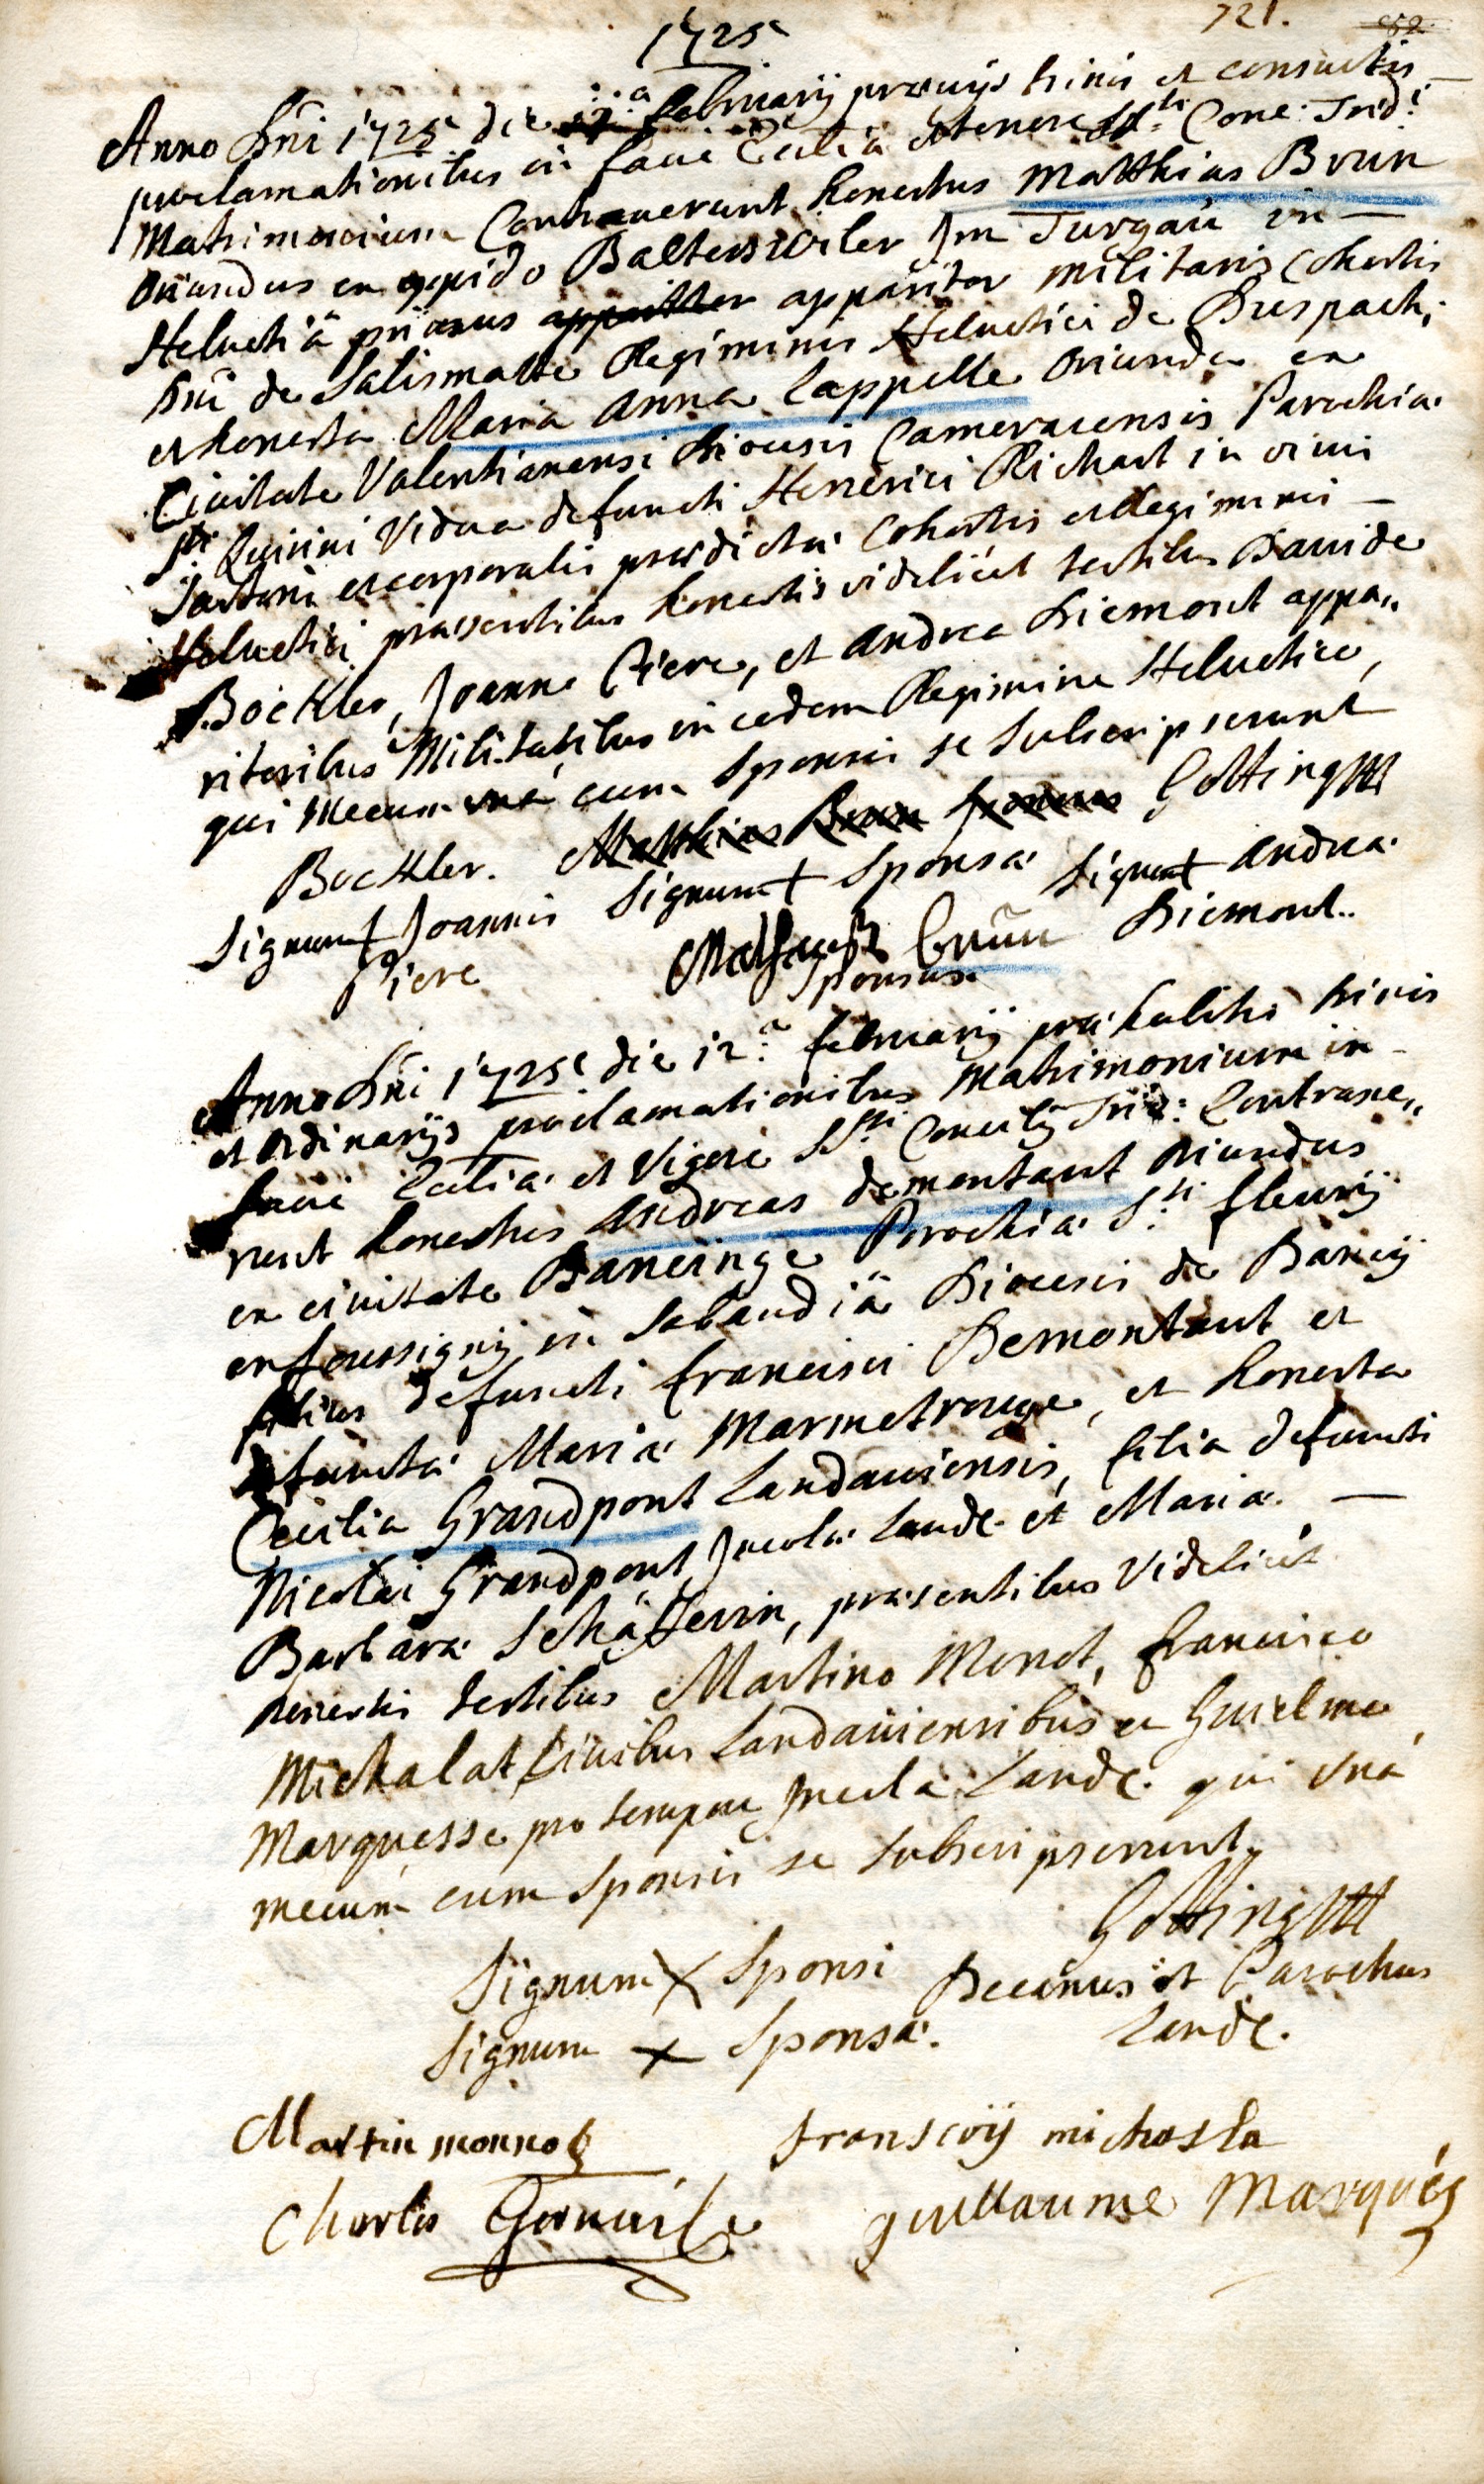 721.
1725
Anno Dni 1725 die februarij praevijs trinis et consuetis
proclamationibus in facie Eccliae tenore SSti Conc: Trid:
Matrimonium Contraxerunt honestus Matthias Brun
oriundus ex oppido Balterswiler Jm Turgaü in
Helvetiâ primus apparitor militaris Cohortis
Dni de Salismatte Regiminis Helvetici de Diespach;
et honesta Maria Anna Cappelle oriunda ex
Civitate Valentianensi Dioecesis Cameracensis Parochiae
Sti Quirini vidua defuncti Henrici Richart in vivis
et corporalis praedictae Cohortis et Regiminis
Helvetici praesentibus honestis videlicet testibus Davide
Böckler, Joanne Piere, et Andrea Diemont appa„
ritoribus Militaribus in eodem Regimine Helvetico,
qui Mecum una cum Sponsis se Subscripserunt
Bockler. Matthias Brun sponsus Götting
Signum + Joannis Signum + Sponsae Signum + Andreae
Piere Brun Diemont.
Sponsus
Anno Dni 1725 die 12a februarij praehabitis trinis
et ordinarijs proclamationibus Matrimonium in
facie Eccliae et vigore SSti Concilij Trid: Contraxe„
runt honestus Andreas demontant oriundus
ex civitate Baneinge Parochiae Sti fleurij
en foussignij in Sabaudiâ Dioecesis de Baneij
filius defuncti francisci Demontant et
defunctae Mariae Marmetrouge, et honesta
Cecilia Grandpont Landaviensis, filia defuncti
Nicolai Grandpont Jncolae Landc. et Mariae
Barbarae Schäfferin, praesentibus videlicet
honestis testibus Martino Monot, francisco
Michalat Civibus Landaviensibus et Guilelmo
Marquesse pro tempore Jncola Landc. qui unâ
mecum cum Sponsis se Subscripserunt.
Götting
Signum X Sponsi Decanus et Parochus
Signum X Sponsae. Landc.
Martin monnot franscoij michalla
Charles guillaume Marqués